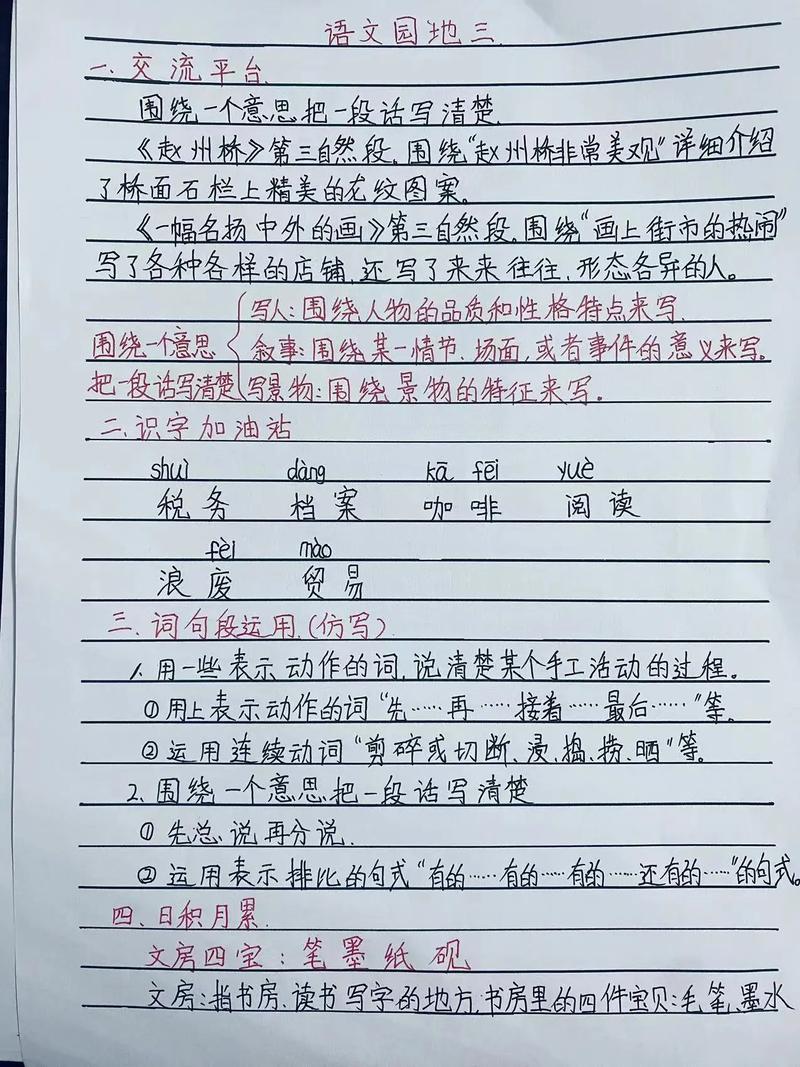 语文园地三.
一.交流平台.
围绕一个意思把一段话写清楚.
《赵州桥》第三自然段,围绕“赵州桥非常美观”详细介绍
了桥面石栏上精美的花纹图案。
《一幅名扬中外的画》第三自然段,围绕“画上街市的热闹”
写了各种各样的店铺,还写了来来往往、形态各异的人。
写人:围绕人物的品质和性格特点来写.
围绕一个意思 叙事:围绕某一情节、场面,或者事件的意义来写。
把一段话写清楚 写景物:围绕景物的特征来写.
二.识字加油站
shuì dàng kā fēi yuè
税务 档案 咖啡 阅读
fèi mào
浪废 贸易
三.词句段运用.(仿写)
1.用一些表示动作的词,说清楚某个手工活动的过程。
①用上表示动作的词“先……再……接着……最后……”等。
②运用连续动词“剪碎或切断、浸、捣、捞、晒”等。
2.围绕一个意思把一段话写清楚
①先总说再分说.
②运用表示排比的句式“有的……有的……有的……还有的……”的句式。
四.日积月累.
文房四宝:笔墨纸砚
文房:指书房、读书写字的地方,书房里的四件宝贝:毛笔、墨水